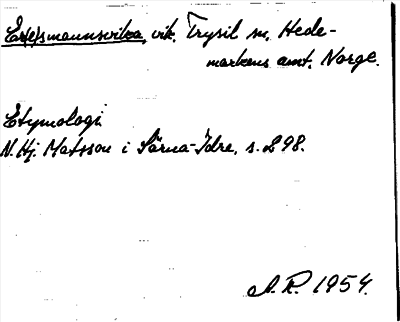 E(e)smannsvika, vik. Trysil sn, Hede-
markens amt. Norge.
Etymologi
N. Hj. Matsson i Särna-Idre, s. 298.
A. R. 1954.